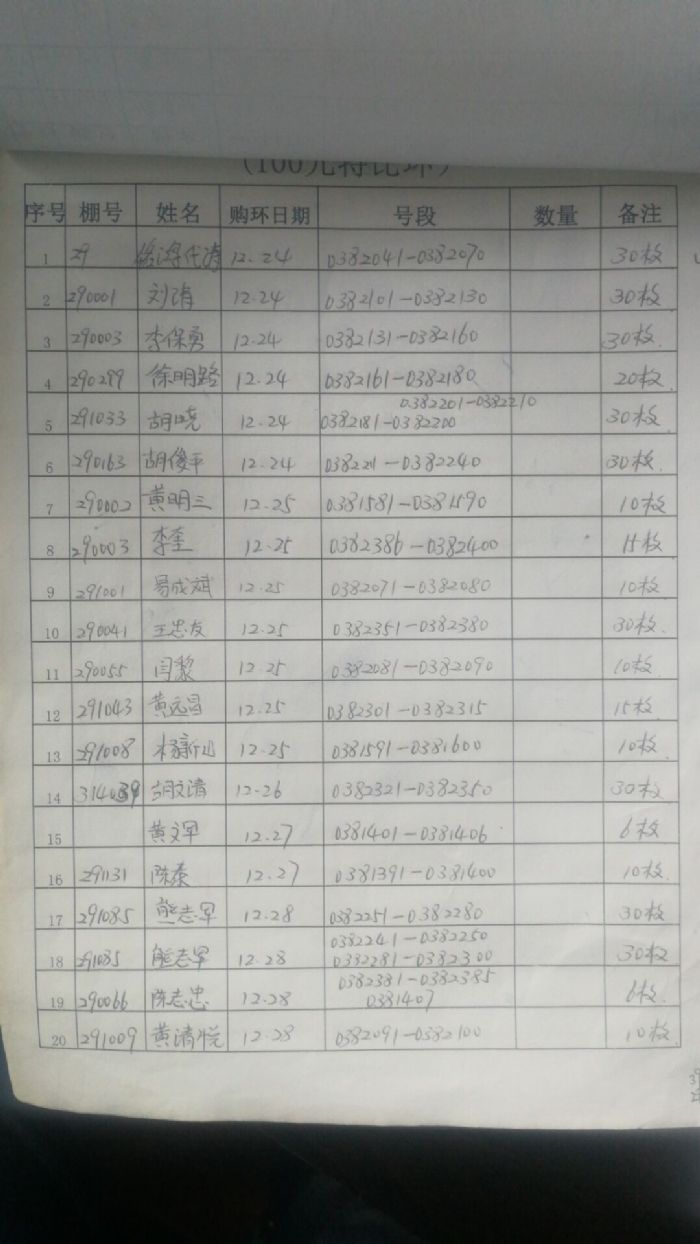 (100元特比环)
序号 棚号 姓名 购环日期 号段 数量 备注
1 29 12.24 0382041-0382070 30枚
2 290001 刘清 12.24 0382101-0382130 30枚
3 290003 李保勇 12.24 0382131-0382160 30枚
4 290299 徐明路 12.24 0382161-0382180 20枚
0382201-0382210
5 291033 胡晓 12.24 0382181-0382200 30枚
6 290163 胡俊平 12.24 038221-0382240 30枚
7 290002 黄明三 12.25 0381581-0381590 10枚
8 290003 李奎 12.25 0382386-0382400 15枚
9 291001 易成斌 12.25 0382071-0382080 10枚
10 290041 王忠友 12.25 0382351-0382380 30枚
11 290055 闫黎 12.25 0382081-0382090 10枚
12 291043 黄远昌 12.25 0382301-0382315 15枚
13 291008 杨新山 12.25 0381591-0381600 10枚
14 314039 胡文清 12.26 0382321-0382350 30枚
15 黄文军 12.27 0381401-0381406 6枚
16 291131 陈泰 12.27 0381391-0381400 10枚
17 291085 熊志军 12.28 0382251-0382280 30枚
0382241-0382250
18 291085 熊志军 12.28 0382281-0382300 30枚
0382381-0382385
19 290066 陈志忠 12.28 0381407 6枚
20 291009 黄清悦 12.28 0382091-0382100 10枚
39